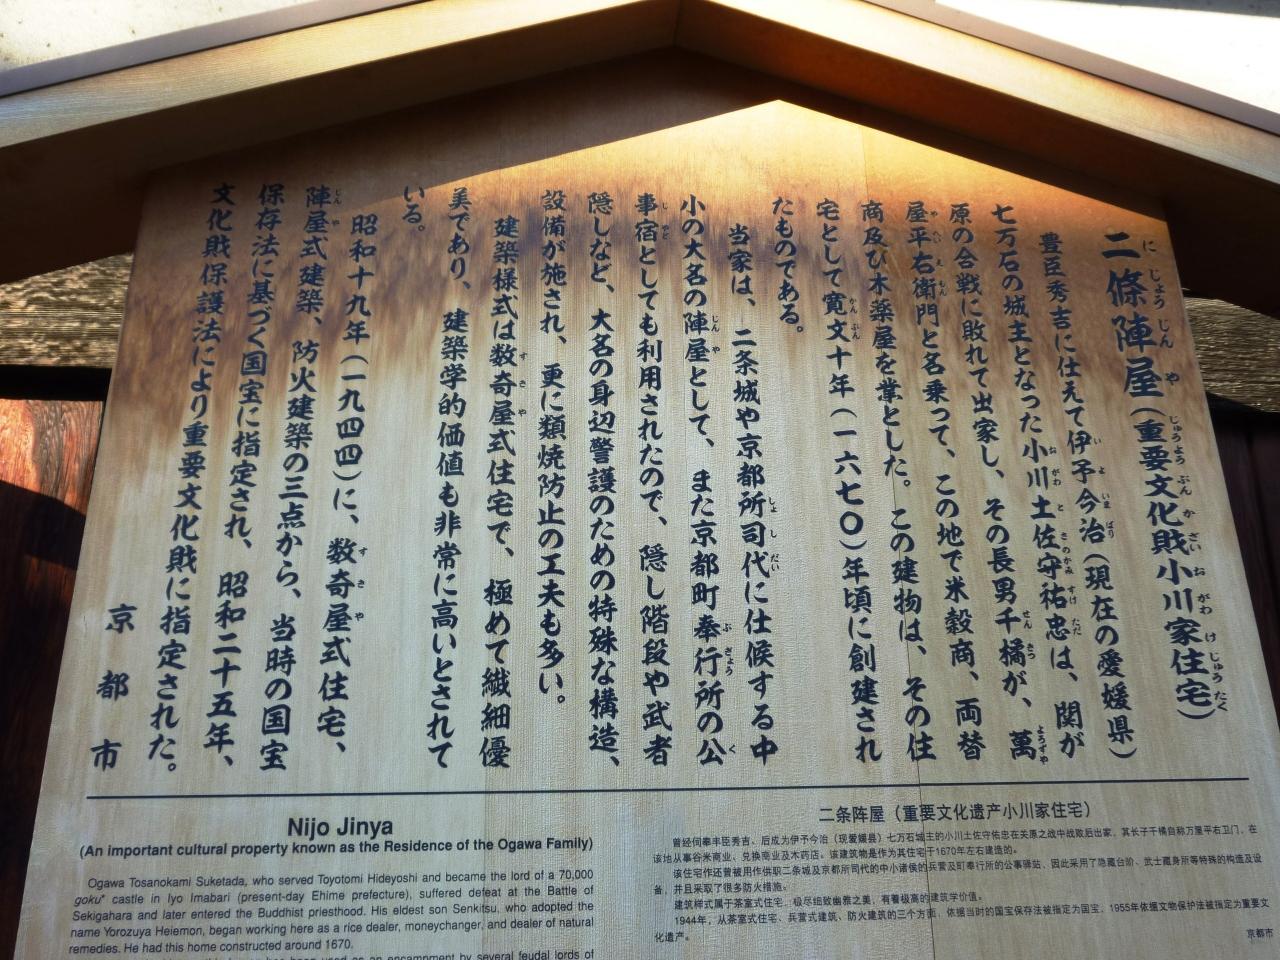 二條陣屋(重要文化財小川家住宅)
豊臣秀吉に仕えて伊予今治(現在の愛媛県)
七万石の城主となった小川土佐守祐忠は、関が
原の合戦に敗れて出家し、その長男千橘が、萬
屋平右衛門と名乗って、この地で米穀商、両替
商及び木薬屋を業とした。この建物は、その住
宅として寛文十年(一六七〇)年頃に創建され
たものである。
当家は、二条城や京都所司代に仕候する中
小の大名の陣屋として、また京都町奉行所の公
事宿としても利用されたので、隠し階段や武者
隠しなど、大名の身辺警護のための特殊な構造、
設備が施され、更に類焼防止の工夫も多い。
建築様式は数奇屋式住宅で、極めて繊細優
美であり、建築学的価値も非常に高いとされて
いる。
昭和十九年(一九四四)に、数奇屋式住宅、
陣屋式建築、防火建築の三点から、当時の国宝
保存法に基づく国宝に指定され、昭和二十五年、
文化財保護法により重要文化財に指定された。
京都市
Nijo Jinya
(An important cultural property known as the Residence of the Ogawa Family)
Ogawa Tosanokami Suketada, who served Toyotomi Hideyoshi and became the lord of a 70,000
goku* castle in Iyo Imabari (present-day Ehime prefecture), suffered defeat at the Battle of
Sekigahara and later entered the Buddhist priesthood. His eldest son Senkitsu, who adopted the
name Yorozuya Heiemon, began working here as a rice dealer, moneychanger, and dealer of natural
remedies. He had this home constructed around 1670.
been used as an encampment by several feudal lords of
二条阵屋(重要文化遗产小川家住宅)
曾经伺奉丰臣秀吉、后成为伊予今治(现爱媛县)七万石城主的小川土佐守佑忠在关原之战中战败后出家,其长子千橘自称万里平右卫门,在
该地从事谷米商业、兑换商业及木药店。该建筑物是作为其住宅于1670年左右建造的。
该住宅作还曾被用作供职二条城及京都所司代的中小诸侯的兵营及町奉行所的公事驿站,因此采用了隐藏台阶、武士藏身所等特殊的构造及设
备,并且采取了很多防火措施。
建筑样式属于茶室式住宅,极尽细致幽雅之美,有着极高的建筑学价值。
1944年,从茶室式住宅、兵营式建筑、防火建筑的三个方面,依据当时的国宝保存法被指定为国宝,1955年依据文物保护法被指定为重要文
化遗产。
京都市